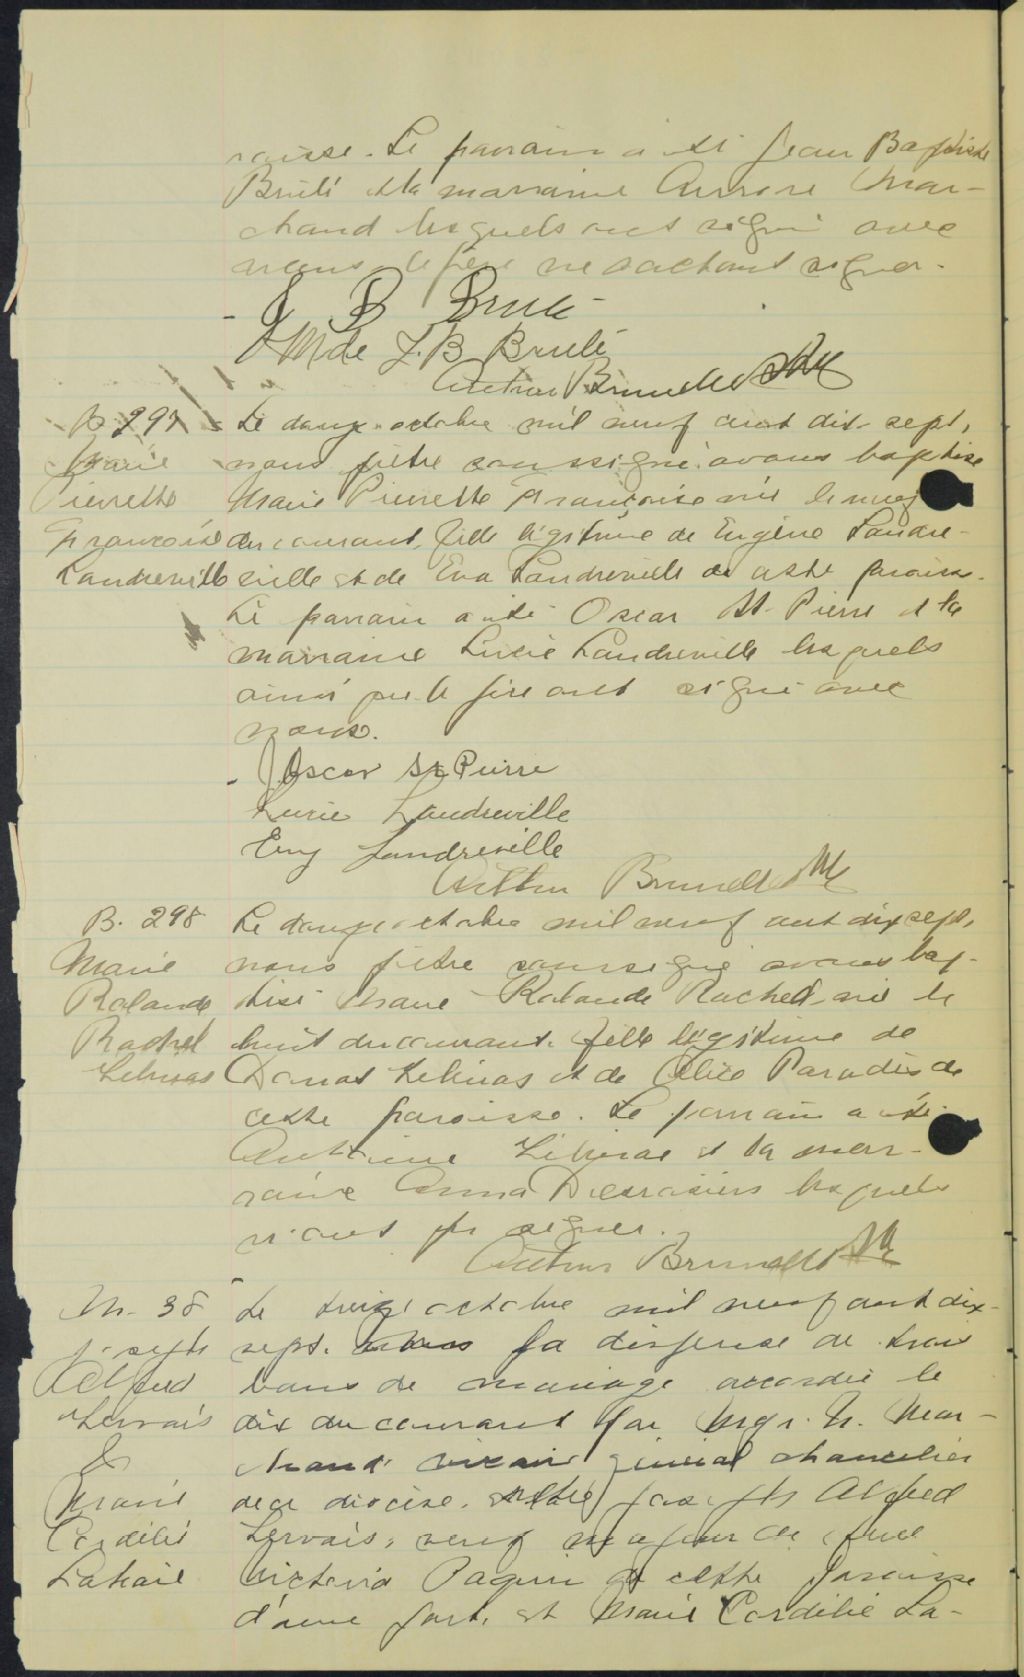 roisse. Le parrain a été Jean Baptiste
Brulé et la marraine Aurore Mar-
chand lesquels ont signé avec
nous, le père ne sachant signer.
J B Brulé
Mde J. B Brulé
Arthur Brunelle Ptre
B 297
Marie
Pierrette
Françoise
Landreville
Le douze octobre mil neuf cent dix-sept,
nous prêtre soussigné avons baptisé
Marie Pierrette Françoise née le neuf
du courant, fille légitime de Eugène Landre-
ville et de Eva Landreville de cette paroisse.
Le parrain a été Oscar St-Pierre et la
marraine Lucie Landreville lesquels
ainsi que le père ont signé avec
nous.
Oscar St Pierre
Lucie Landreville
Eug Landreville
Arthur Brunelle Ptre
B. 298
Marie
Rolande
Rachel
Le douze octobre mil neuf cent dix sept,
nous prêtre soussigné avons bap-
tisé Marie Rolande Rachel née le
huit du courant, fille légitime de
Donat et de Alice Paradis de
cette paroisse. Le parrain a été
Antoine et la mar-
raine Anna Desrosiers lesquels
n'ont pu signer.
Arthur Brunelle Ptre
M. 38
Joseph
Alfred
Gervais
&
Marie
Cordélie
Lahaie
Le treize octobre mil neuf cent dix-
sept, la dispense de trois
bans de mariage accordée le
dix du courant par Mgr. N. Mar-
chand vicaire général chancelier
de ce diocèse, entre Joseph Alfred
Gervais, veuf majeur de feue
Victoria Paquin de cette paroisse
d'une part, et Marie Cordélie La-